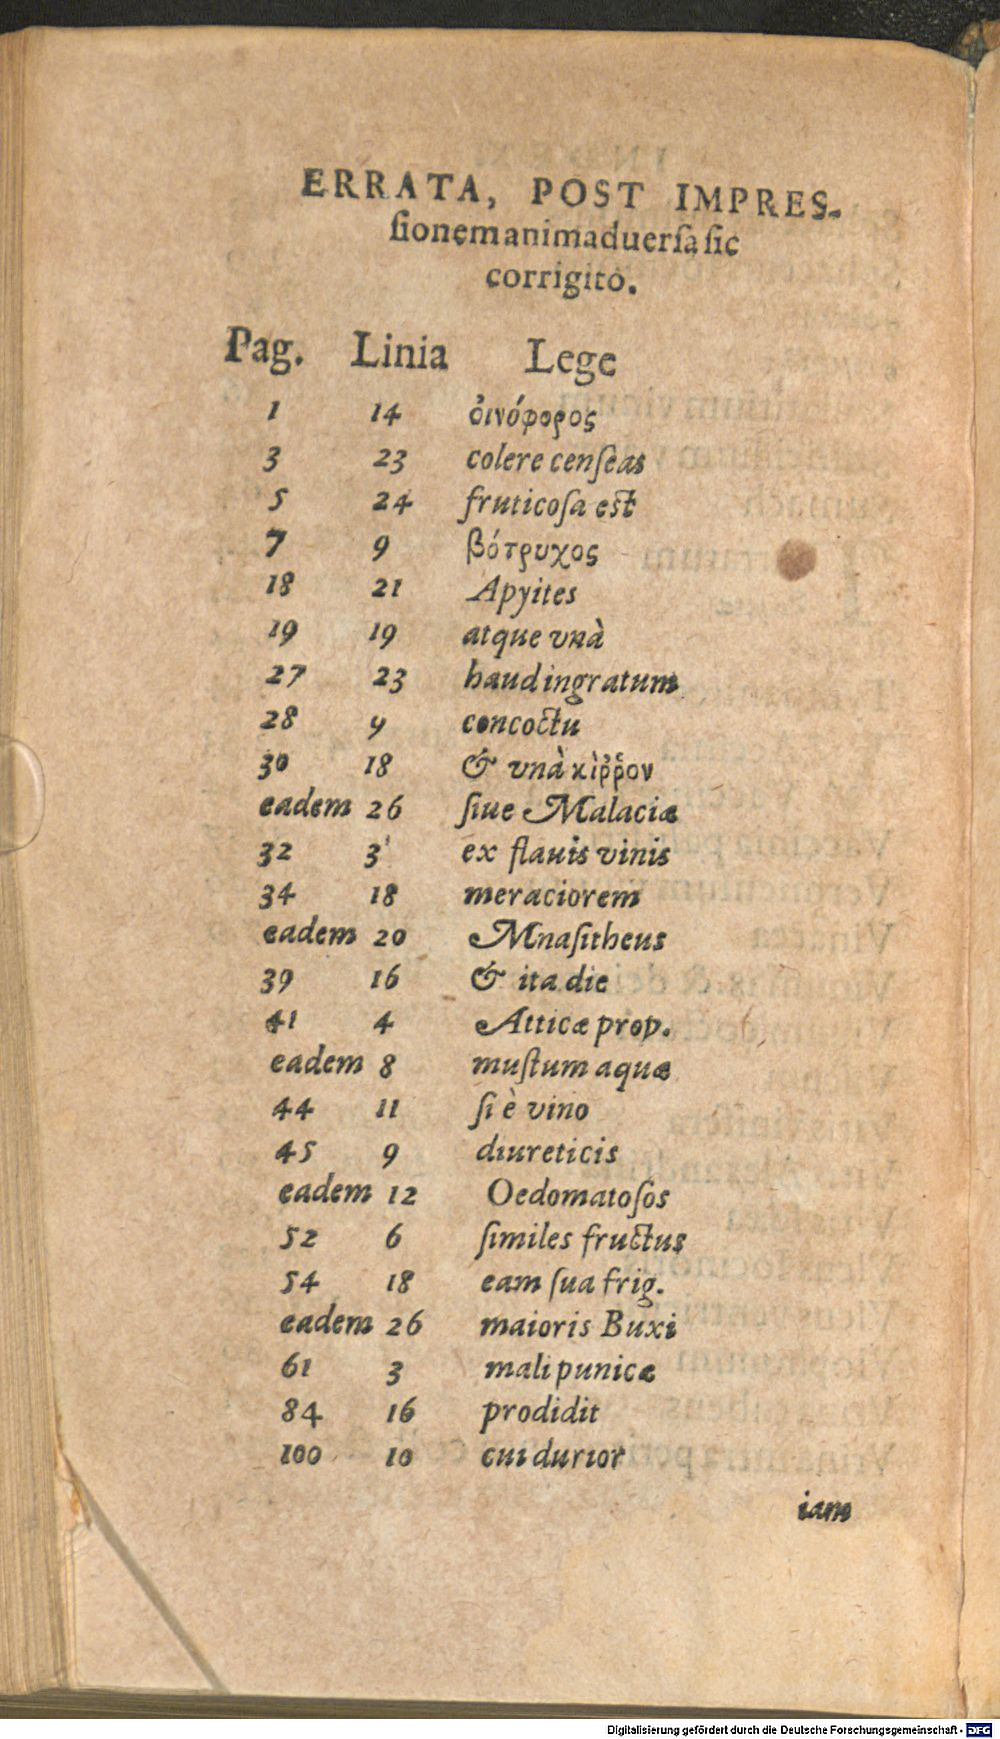 ERRATA, POST IMPRES-
ſionem animaduerſa ſic
corrigito.
Pag. Linia Lege
1 14 ὀινόφορος
3 23 colere cenſeas
5 24 fruticoſa est
7 9 βότρυχος
18 21 Apyites
19 19 atque vnà
27 23 haud ingratum
28 9 concoctu
30 18 & vnà κὶῤῥον
eadem 26 ſiue Malaciæ
32 3 ex flauis vinis
34 18 meraciorem
eadem 20 Mnaſitheus
39 16 & ita die
41 4 Atticæ prop.
eadem 8 muſtum aquæ
44 11 ſi è vino
45 9 diureticis
eadem 12 Oedomatoſos
52 6 ſimiles fructus
54 18 eam ſua frig.
eadem 26 maioris Buxi
61 3 mali punicæ
84 16 prodidit
100 10 cui durior
iam
Digitalisierung gefördert durch die Deutsche Forschungsgemeinschaft - DFG